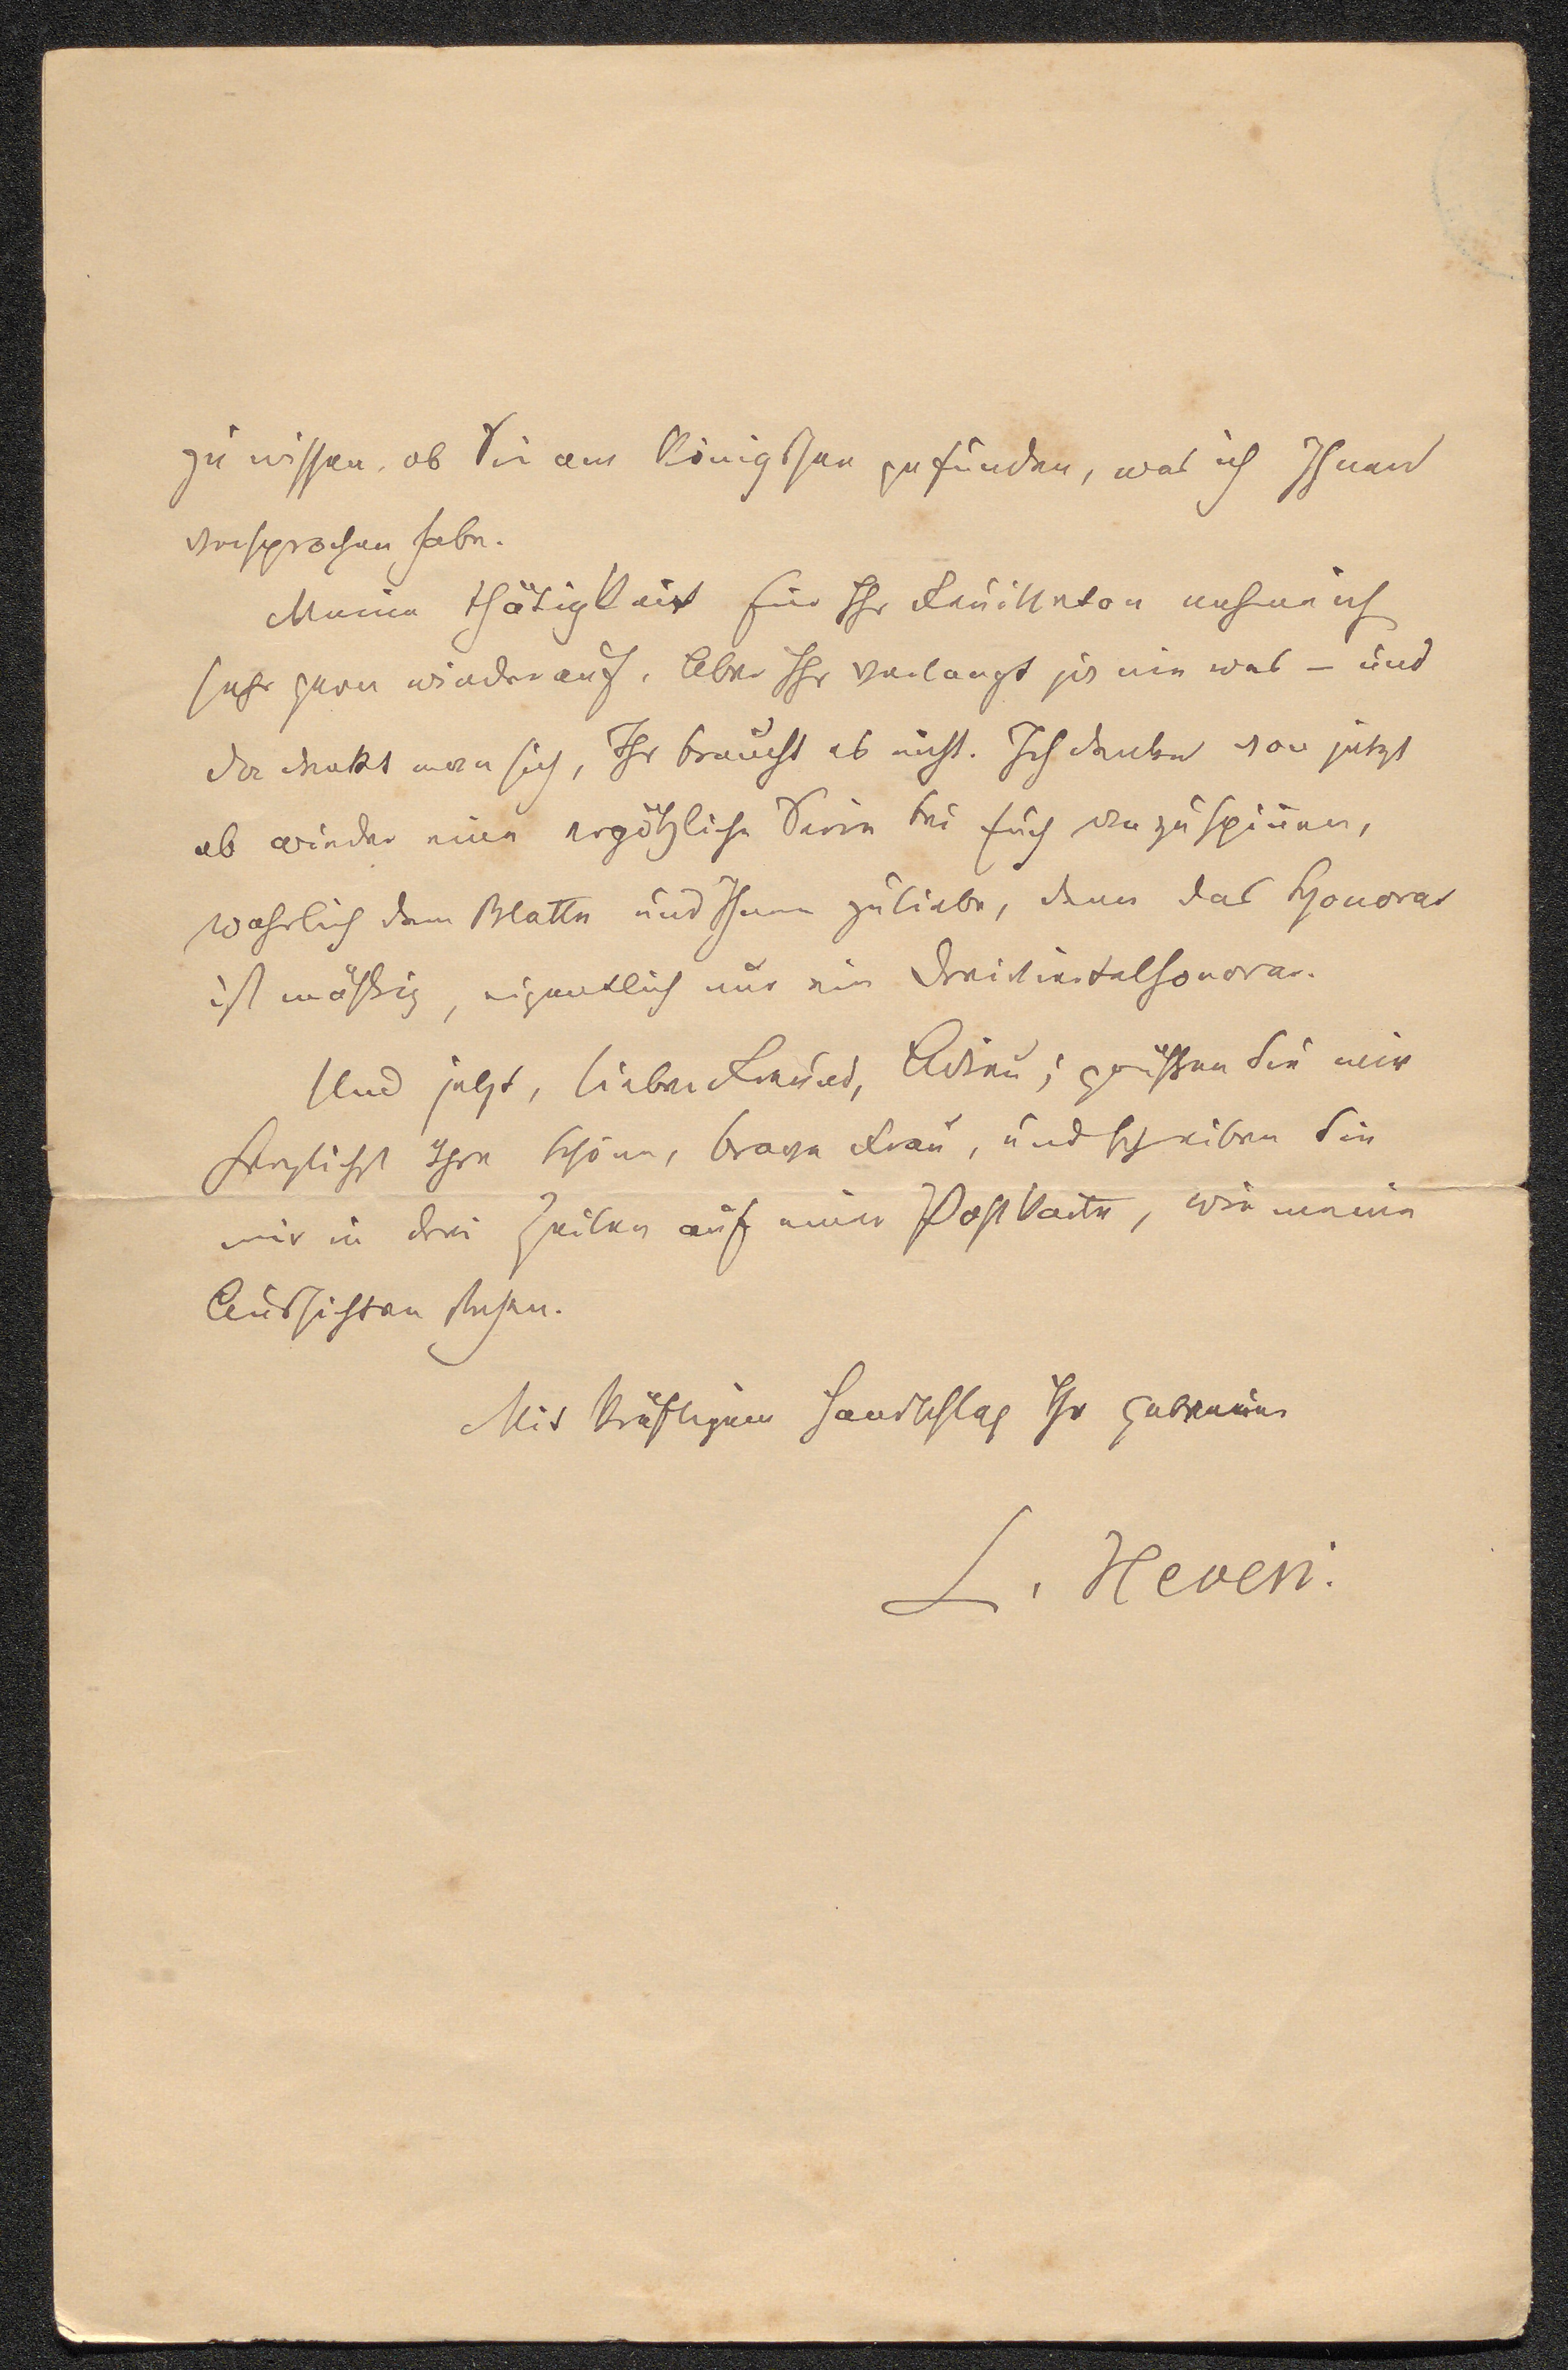 zu wissen, ob Sie am Königssee gefunden, was ich Ihnen
versprochen habe.
Meine Thätigkeit für Ihr Feuilleton nehme ich
sehr gern wieder auf. Aber Ihr verlangt ja nie was – und
da denkt man sich, Ihr braucht es nicht. Ich denke von jetzt
ab wieder eine ergötzliche Serie bei Euch anzuspinnen,
wahrlich dem Blatte und Ihnen zuliebe, denn das Honorar
ist mäßig, eigentlich nur ein Dreiviertelhonorar.
Und jetzt, lieber Freund, Adieu; grüßen Sie mir
herzlichst Ihre schöne, brave Frau, und schreiben Sie
mir in drei Zeilen auf einer Postkarte, wie meine
Aussichten stehen.
Mit kräftigem Handschlag Ihr getreuer
L. Hevesi.